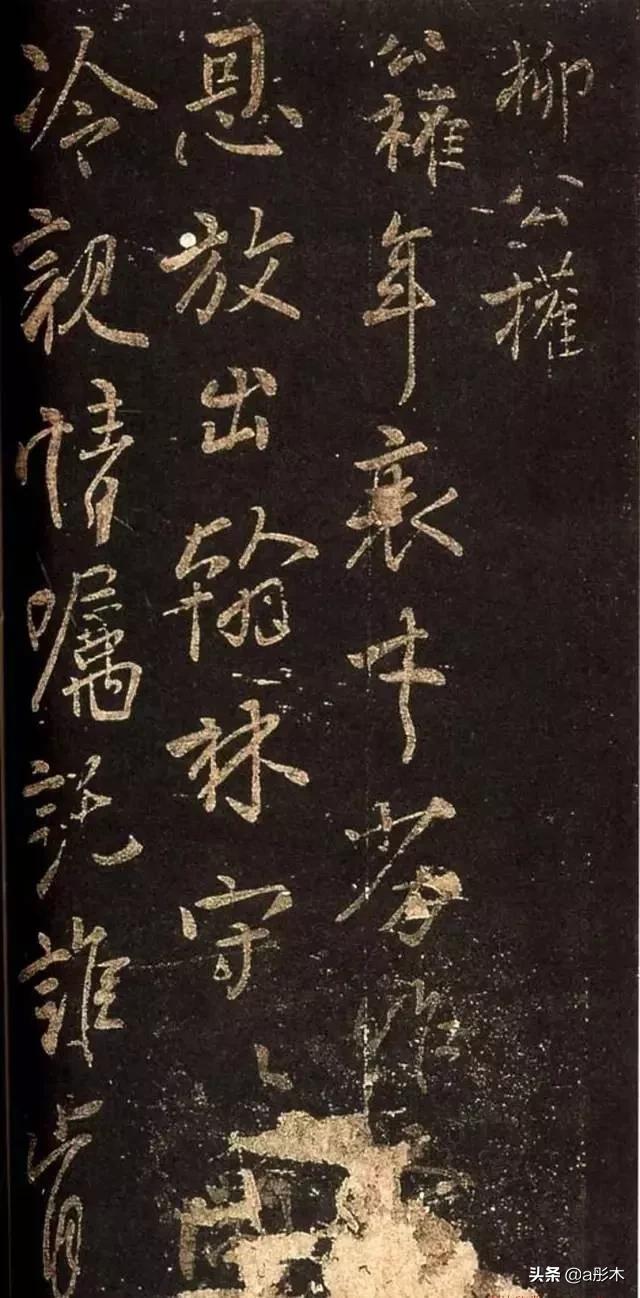 柳公權
公權年衰才劣昨
恩放出翰林守
冷親情囑託誰肯
头条 @a彤木